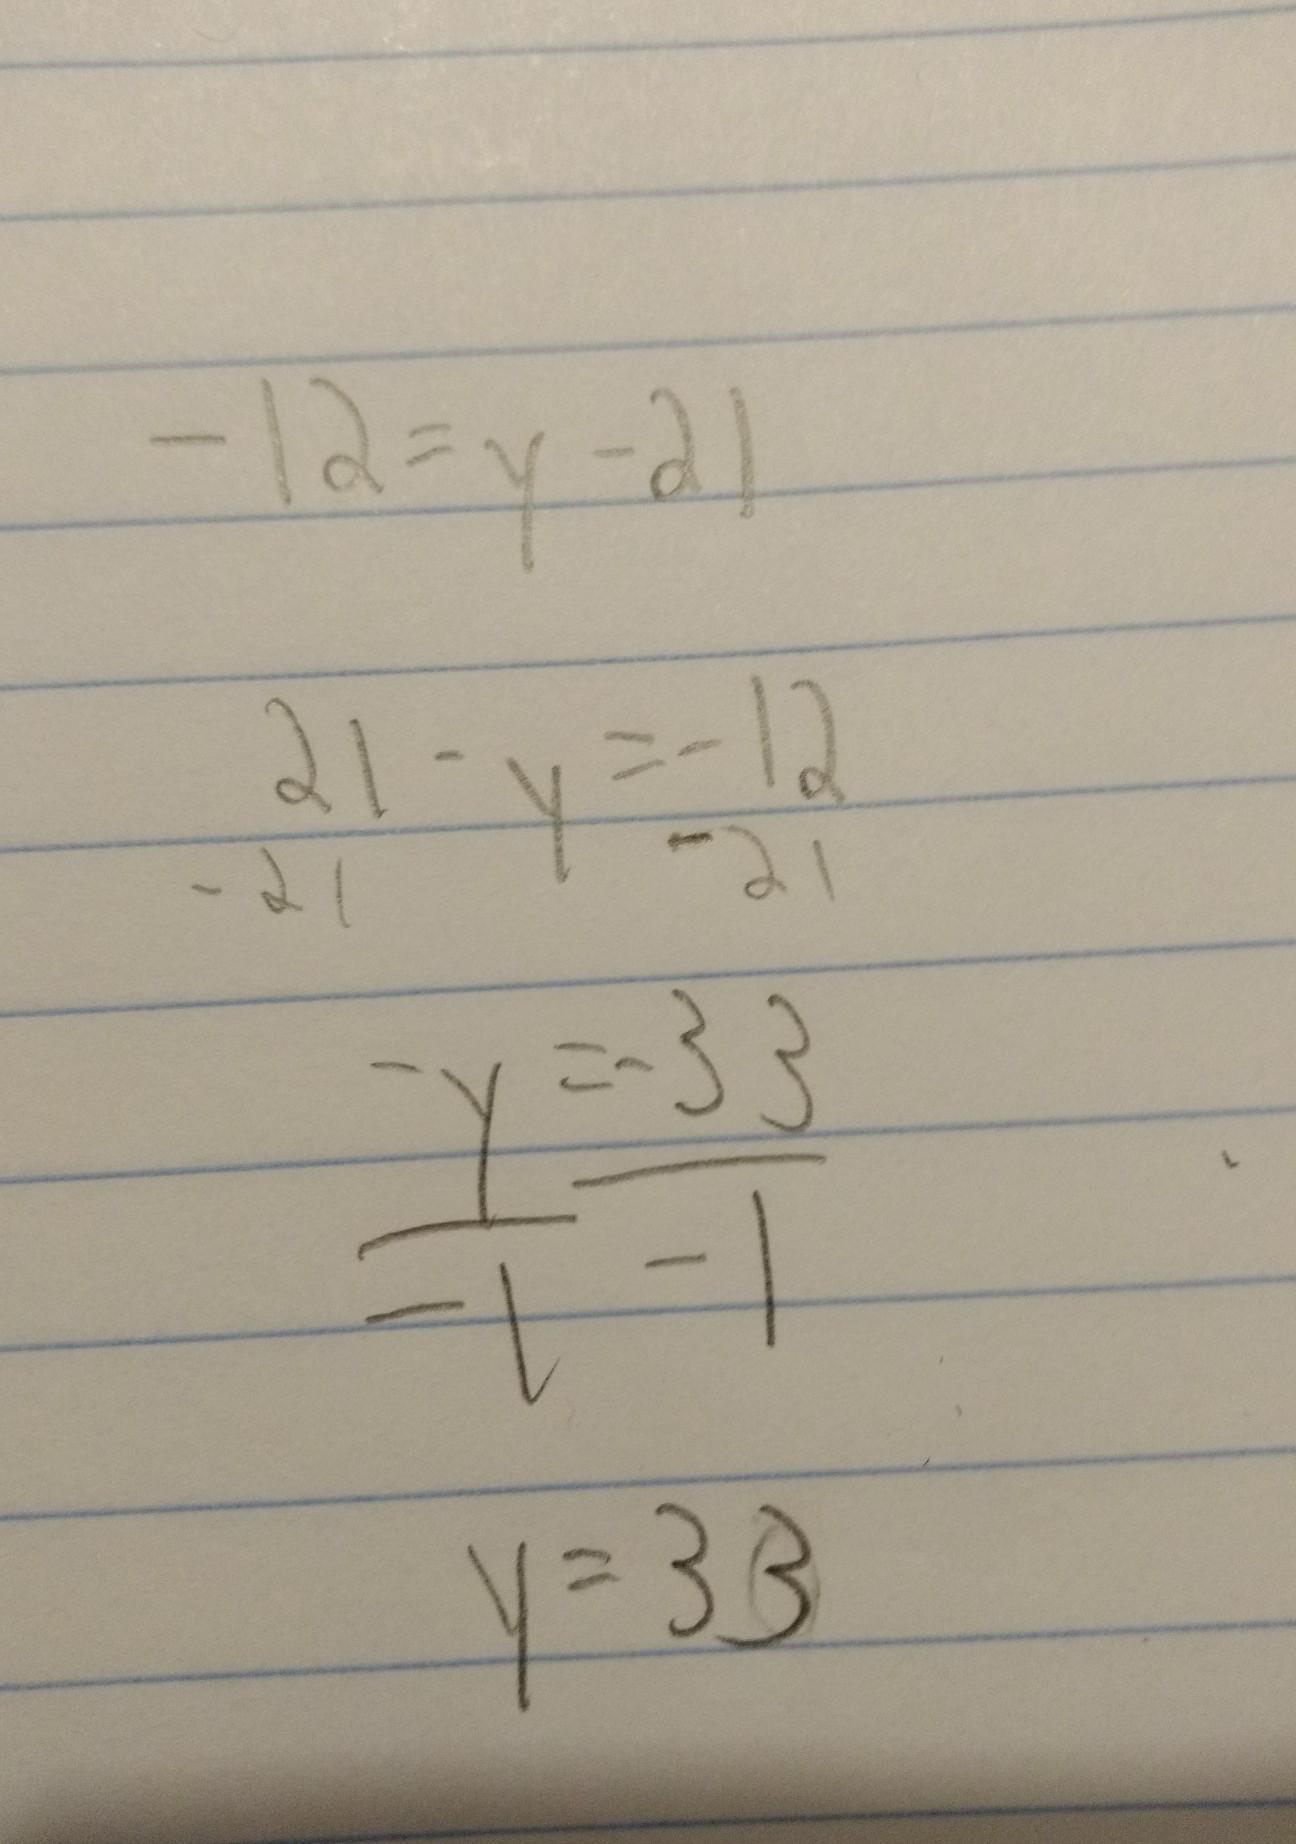 -12=y-21
21-y=-12
-21 -21
-y=-33
-1 -1
y=33